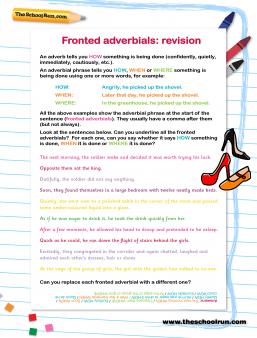 TheSchoolRun.com
Fronted adverbials: revision
An adverb tells you HOW something is being done (confidently, quietly,
immediately, cautiously, etc.).
An adverbial phrase tells you HOW, WHEN or WHERE something is
being done using one or more words, for example:
HOW: Angrily, he picked up the shovel.
WHEN: Later that day, he picked up the shovel.
WHERE: In the greenhouse, he picked up the shovel.
All the above examples show the adverbial phrase at the start of the
sentence (fronted adverbials). They usually have a comma after them
(but not always).
Look at the sentences below. Can you underline all the fronted
adverbials? For each one, can you say whether it says HOW something
is done, WHEN it is done or WHERE it is done?
The next morning, the soldier woke and decided it was worth trying his luck.
Opposite them sat the king.
Dutifully, the soldier did not say anything.
Soon, they found themselves in a large bedroom with twelve neatly made beds.
Quickly, she went over to a polished table in the corner of the room and poured
some amber-coloured liquid into a glass.
As if he was eager to drink it, he took the drink quickly from her.
After a few moments, he allowed his head to droop and pretended to be asleep.
Quick as he could, he ran down the flight of stairs behind the girls.
Excitedly, they congregated in the corridor and again chatted, laughed and
admired each other's dresses, hair or shoes.
At the edge of the group of girls, the girl with the golden hair talked to no-one.
Can you replace each fronted adverbial with a different one?
www.theschoolrun.com